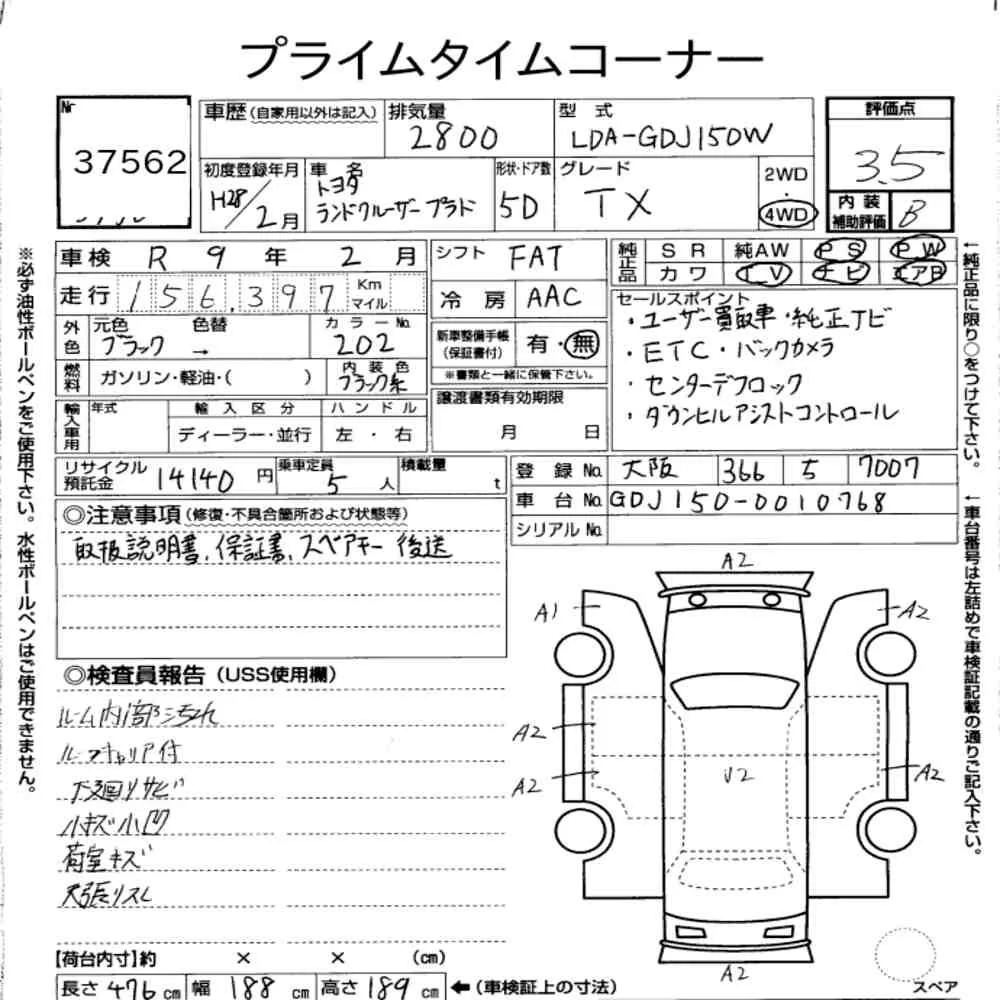 プライムタイムコーナー
Nr
37562
車歴(自家用以外は記入)
排気量
2800
型式
LDA-GDJ150W
評価点
3.5
内装
補助評価
B
初度登録年月
H28/2月
車名
トヨタ
ランドクルーザープラド
形状・ドア数
5D
グレード
TX
2WD
・
4WD
車検 R 9年 2月
走行 156,397 Km
マイル
外色
元色 ブラック
色替 →
カラーNo. 202
燃料
ガソリン・軽油・( )
内装色
ブラック系
輸入車用
年式
輸入区分
ディーラー・並行
ハンドル
左・右
シフト FAT
冷房 AAC
新車整備手帳
(保証書付)
有・無
※書類と一緒に保管下さい。
譲渡書類有効期限
月 日
純正品
SR 純AW PS PW
カワ TV ナビ エアB
セールスポイント
・ユーザー買取車・純正ナビ
・ETC・バックカメラ
・センターデフロック
・ダウンヒルアシストコントロール
リサイクル預託金 14140円
乗車定員 5人
積載量 t
登録No. 大阪 366 5 7007
車台No. GDJ150-0010768
シリアルNo.
◎注意事項(修復・不具合箇所および状態等)
取扱説明書、保証書、スペアキー後送
◎検査員報告(USS使用欄)
ルーム内部汚れ
ルーフキャリア付
下廻りサビ
小キズ小凹
荷室キズ
天張リスレ
【荷台内寸】約 × × (cm)
長さ476cm 幅188cm 高さ189cm ←(車検証上の寸法)
A2
A1
A2
A2
A2
U2
A2
A2
スペア
※必ず油性ボールペンをご使用下さい。水性ボールペンはご使用できません。
←純正品に限り○をつけて下さい。
←車台番号は左詰めで車検証記載の通りご記入下さい。